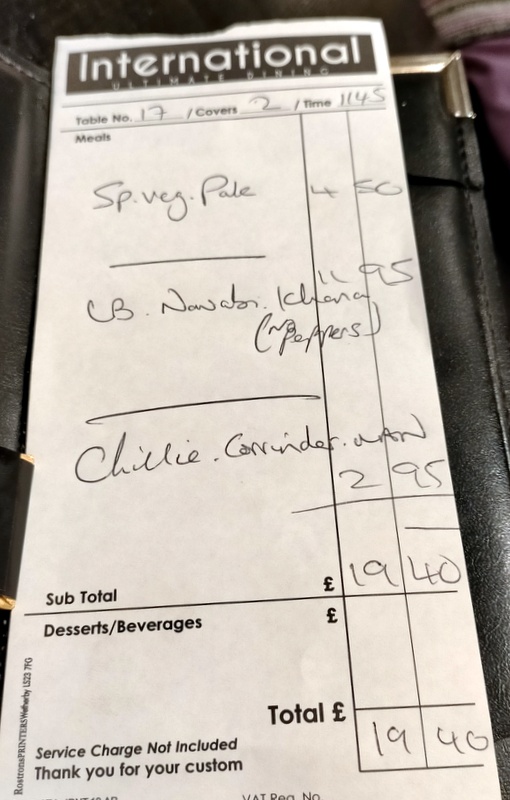 International
ULTIMATE DINING
Table No. 17 / Covers 2 / Time 1145
Meals
Sp. veg. Pale 4 50
CB. Nawabi. Khana 11 95
Peppers)
Chillie. Corrinder. NAN
2 95
Sub Total £ 19 40
Desserts/Beverages £
Total £ 19 40
Service Charge Not Included
Thank you for your custom
RostronsPRINTERSWetherby LS23 7FG
VAT Reg. No.